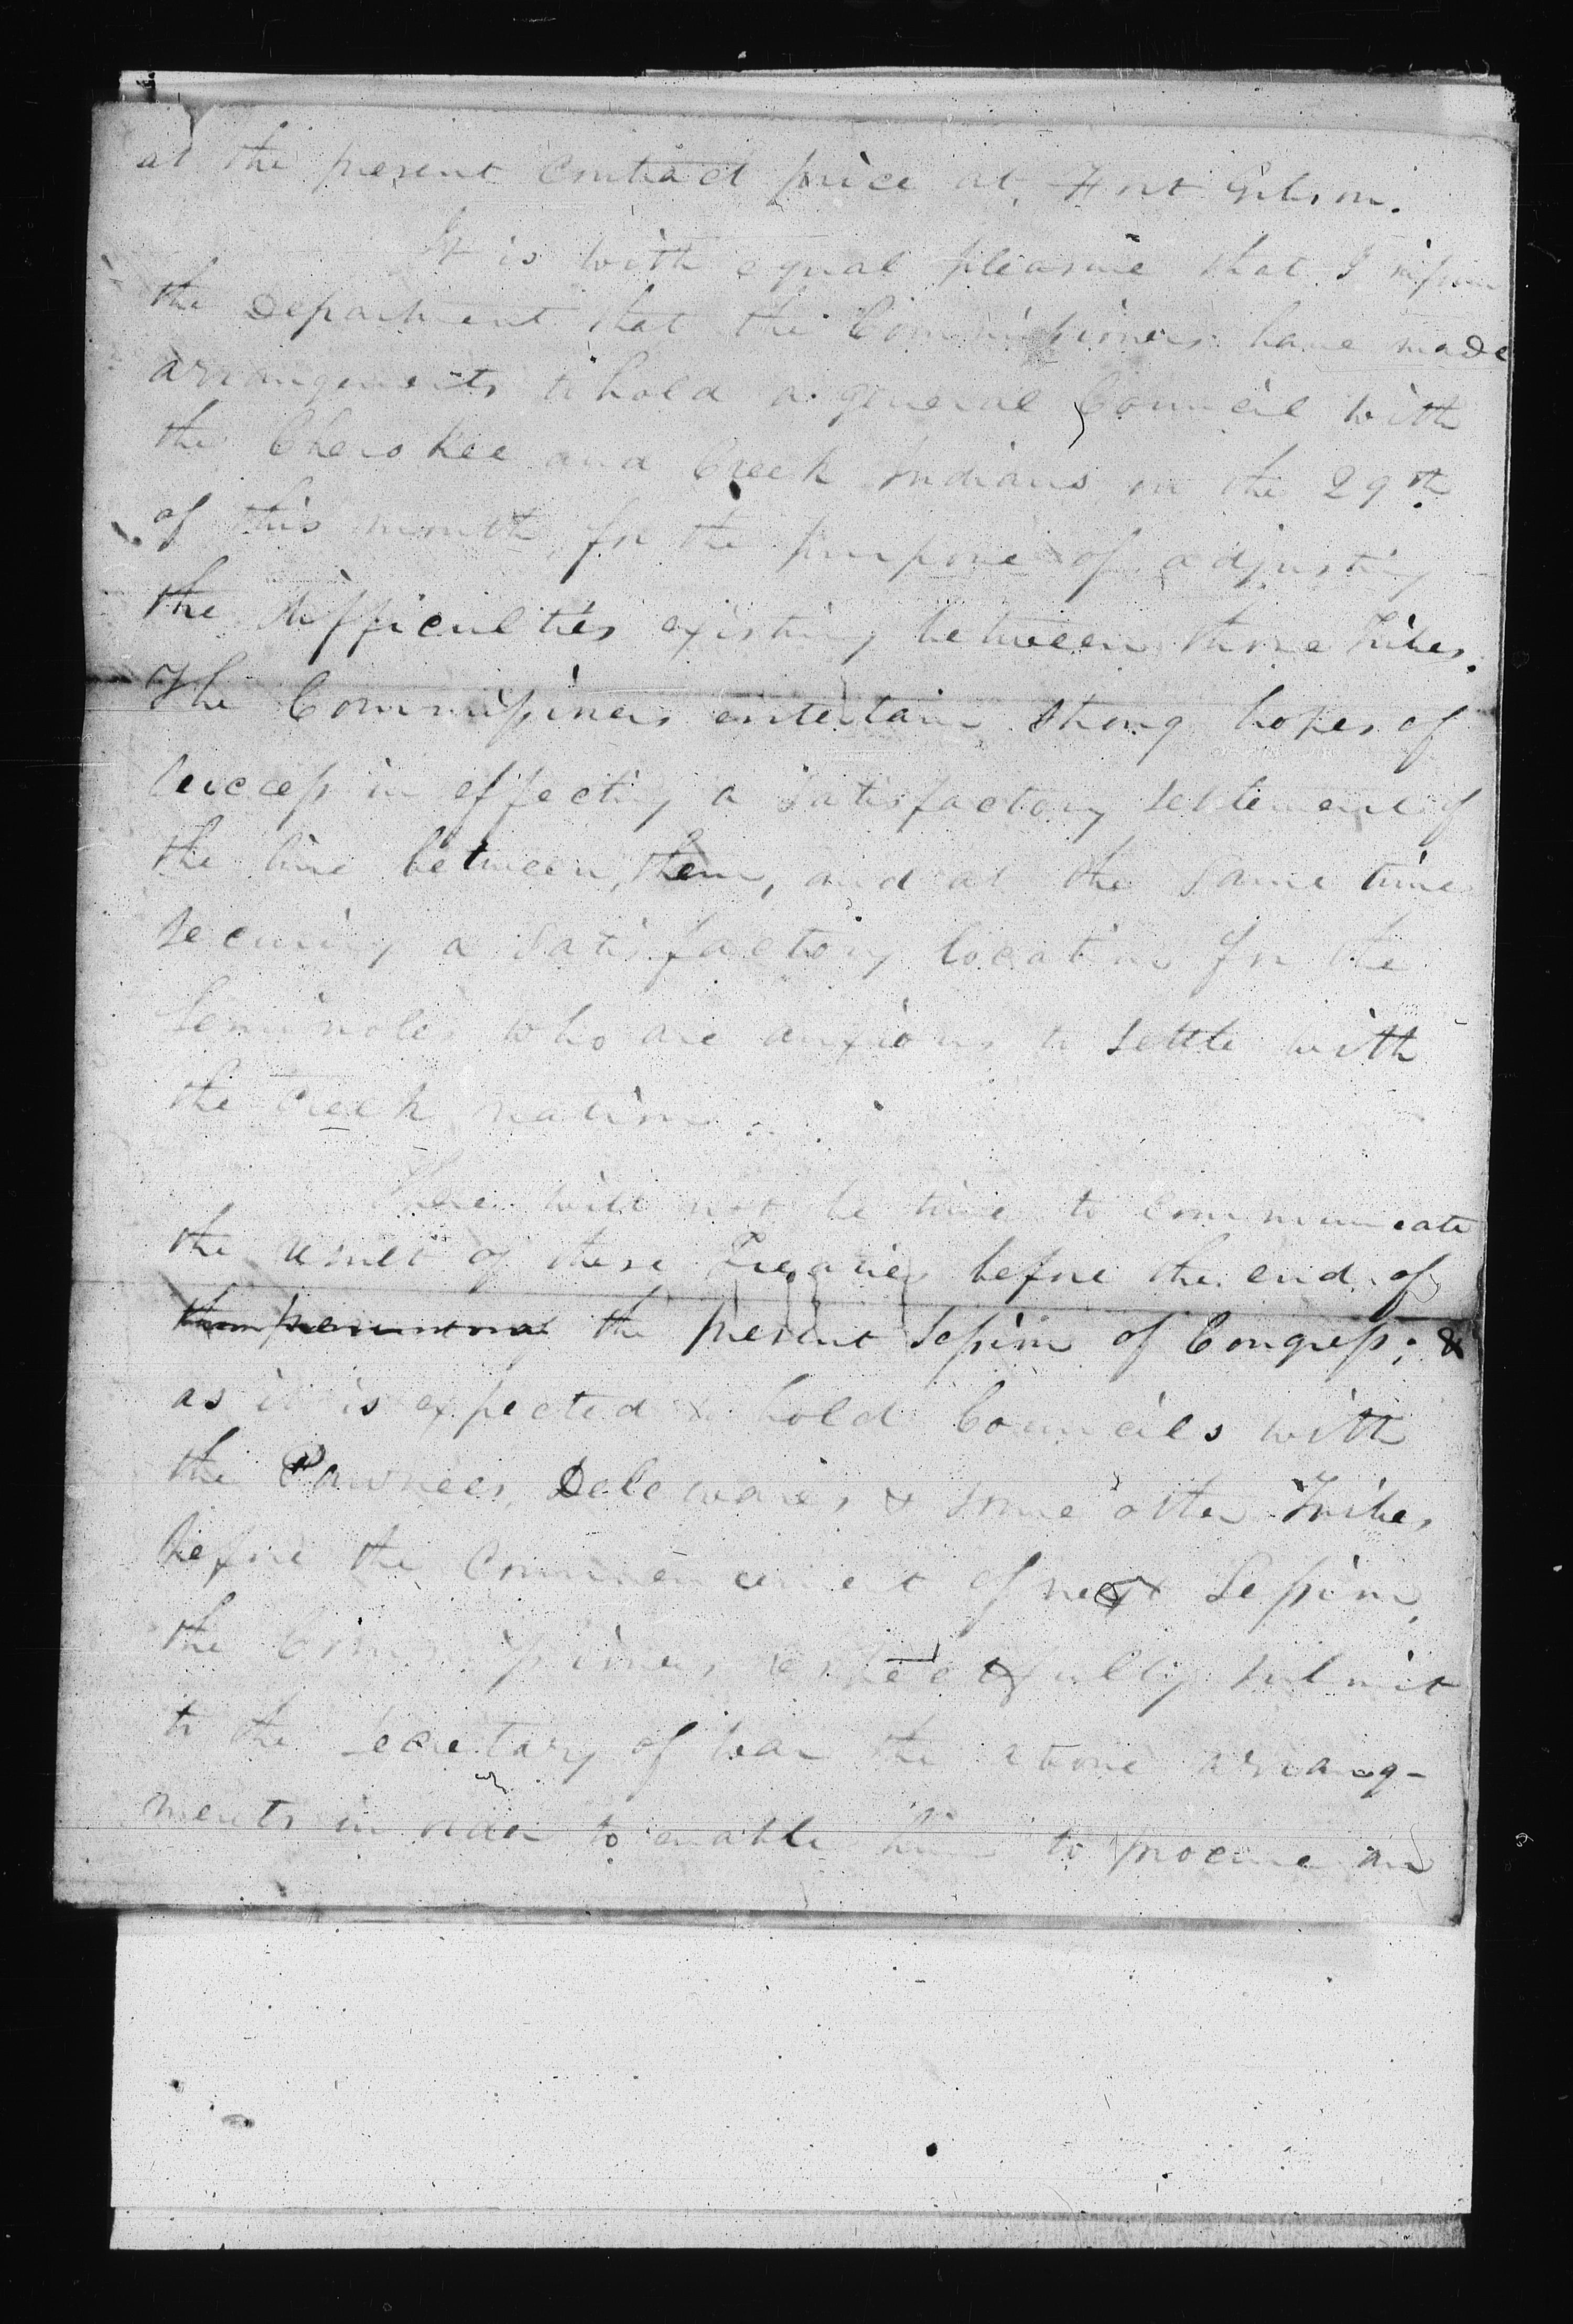 at the present contract price at Fort Gibson.
It is with equal pleasure that I inform
the Department that the Commissioners have made
arrangements to hold a general Council with
the Cherokee and Creek Indians on the 29th
of this month, for the purpose of adjusting
the difficulties existing between those tribes.
The Commissioners entertain strong hopes of
success in effecting a satisfactory settlement of
the line between them, and at the same time
securing a satisfactory location for the
Seminoles who are anxious to settle with
the Creek nation.
There will not be time to communicate
the result of these Treaties before the end of
the present Session of Congress; &
as it is expected to hold Councils with
the Pawnees, Delewares & some other Tribes,
before the Commencement of next Session,
the Commissioners respectfully submit
to the Secretary of War the above arrang-
ments in order to enable him to procure an